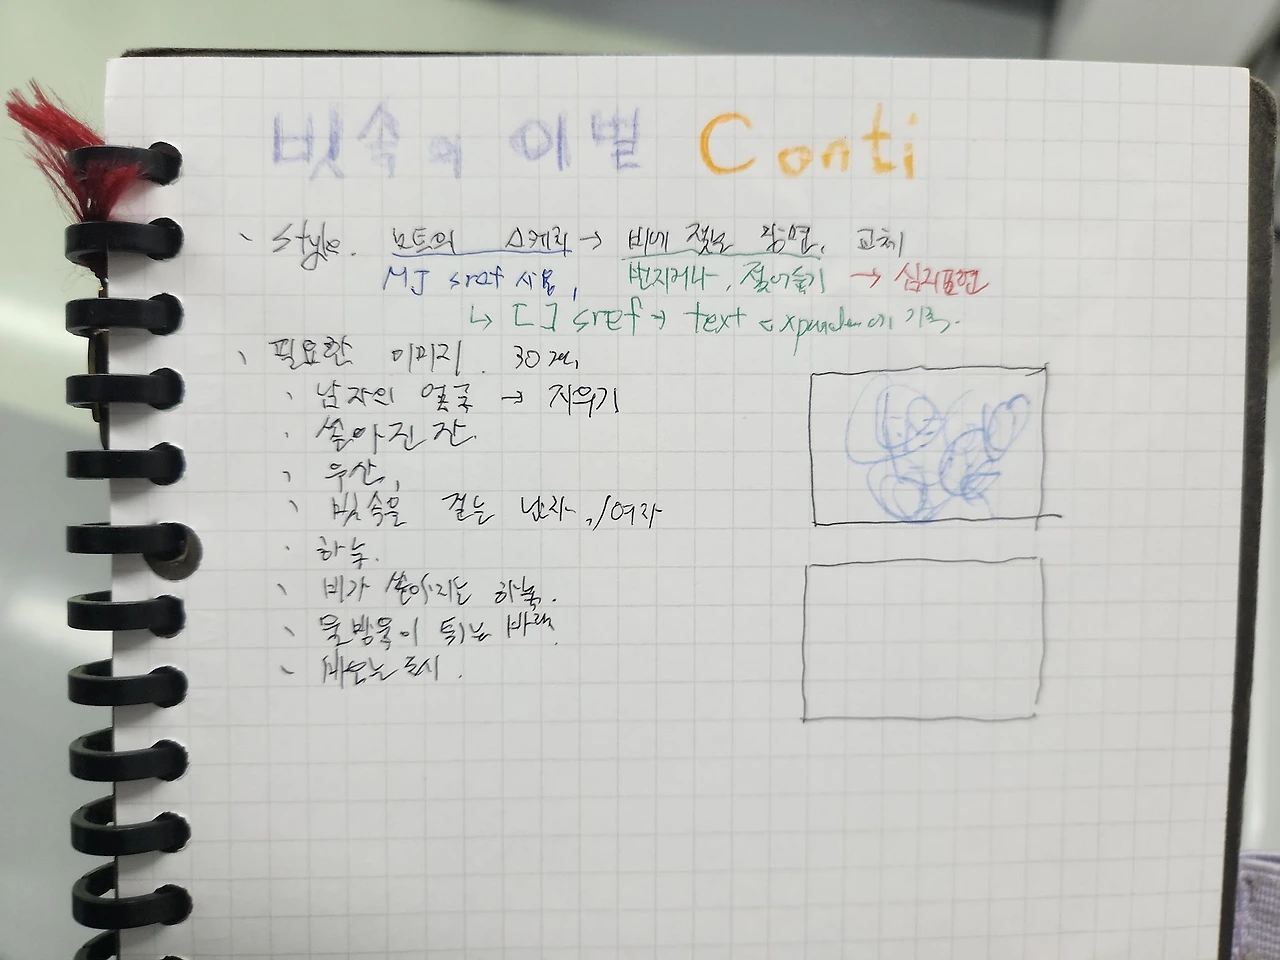 빗속의 이별 Conti
style. 노트의 스케치 → 비에 젖은 장면. 교체
MJ sref 사용, 번지거나, 젖어들기 → 심리표현
↳ [ ] sref → text expander에 기록.
필요한 이미지. 30개.
남자의 얼굴 → 지우기
쏟아진 잔.
우산,
빗속을 걷는 남자./여자
하늘.
비가 쏟아지는 하늘.
물방울이 튀는 바닥.
비오는 도시.